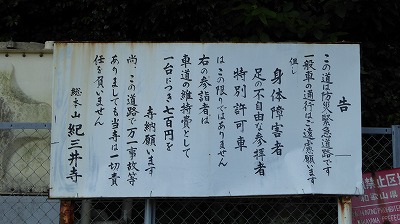 告
この道は防災緊急道路です
一般車の通行はご遠慮願います
但し
身体障害者
足の不自由な参拝者
特別許可車
はこの限りではありません
右の参詣者は
車道の維持費として
一台につき七百円を
寺納願います
尚、この道路で万一事故等
ありましても当寺は一切責
任を負いません
総本山 紀三井寺
禁止区域
和歌山県